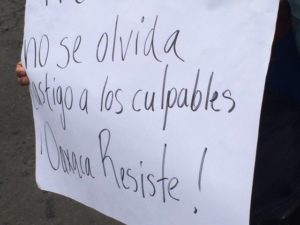 no se olvida
castigo a los culpables
¡Oaxaca Resiste!